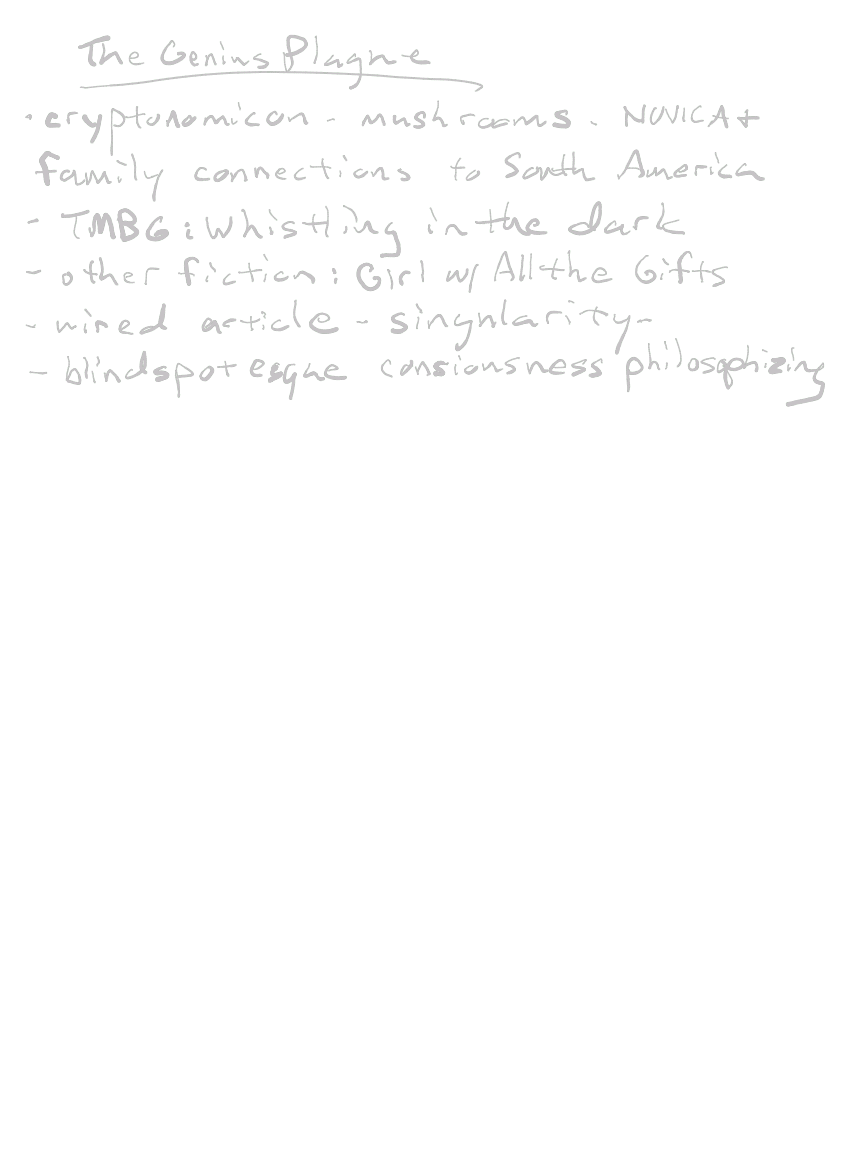 The Genius Plague
· cryptonomicon - mushrooms. NOVICA +
family connections to South America
- TMBG: Whistling in the dark
- other fiction: Girl w/ All the Gifts
- wired article - singularity-
- blindspotesque consiousness philosophizing